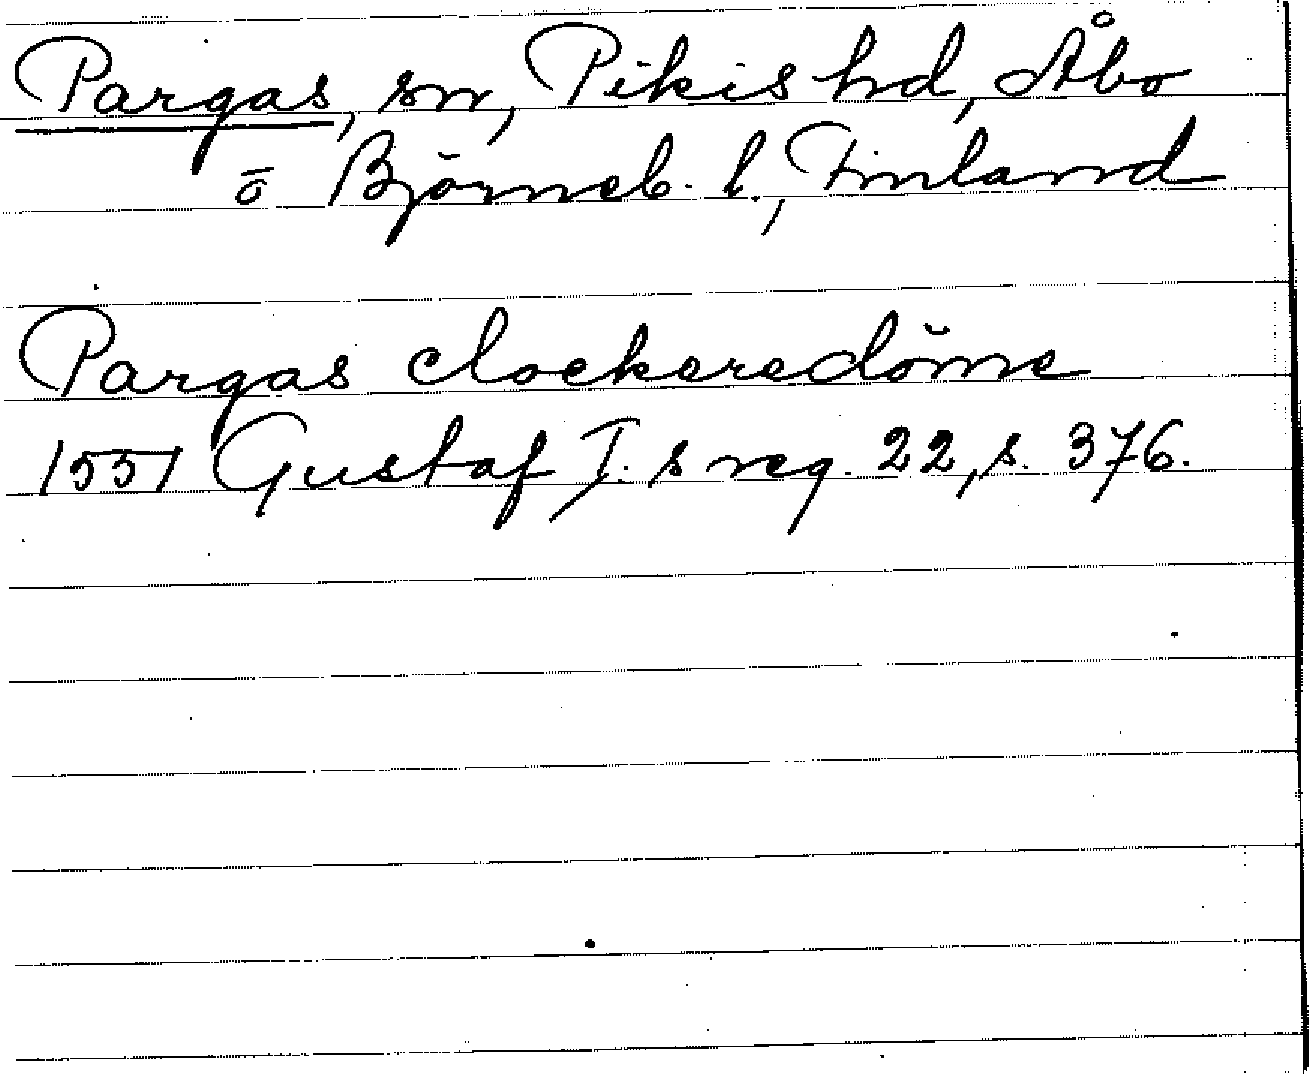 Pargas, sn, Pikis hd, Åbo
o Björneb. l., Finland
Pargas clockeredöme
1551 Gustaf I:s reg. 22, s. 376.